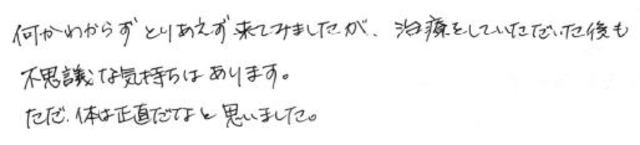 何かわからず とりあえず 来てみましたが、治療をしていただいた後も
不思議な気持ちは あります。
ただ、体は正直だなと 思いました。